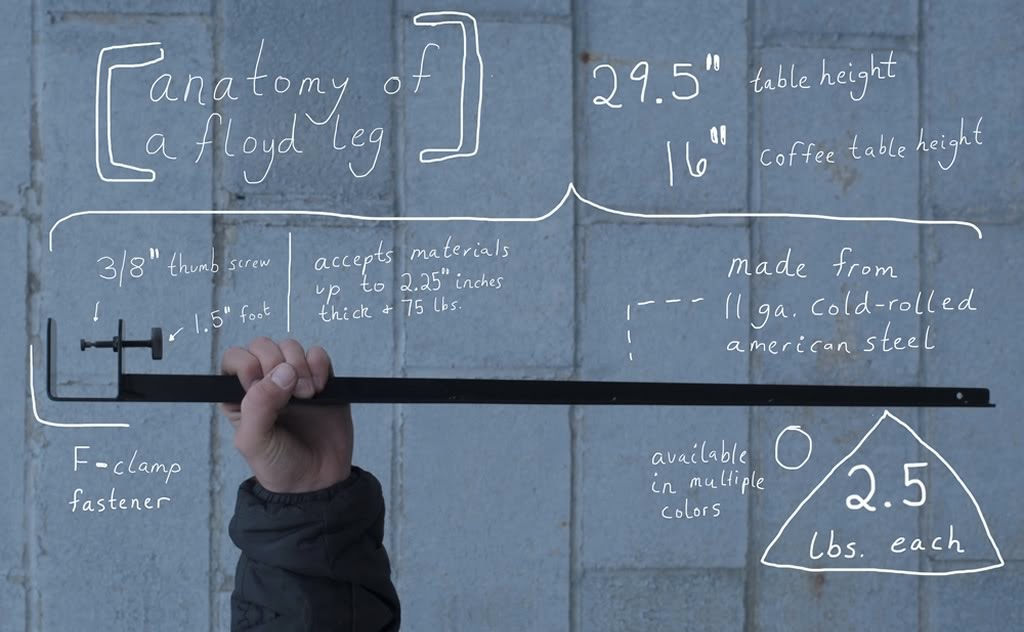 anatomy of
a floyd leg
29.5" table height
16" coffee table height
3/8" thumb screw
1.5" foot
accepts materials
up to 2.25" inches
thick + 75 lbs.
made from
11 ga. cold-rolled
american steel
F-clamp
fastener
available
in multiple
colors
2.5
lbs. each